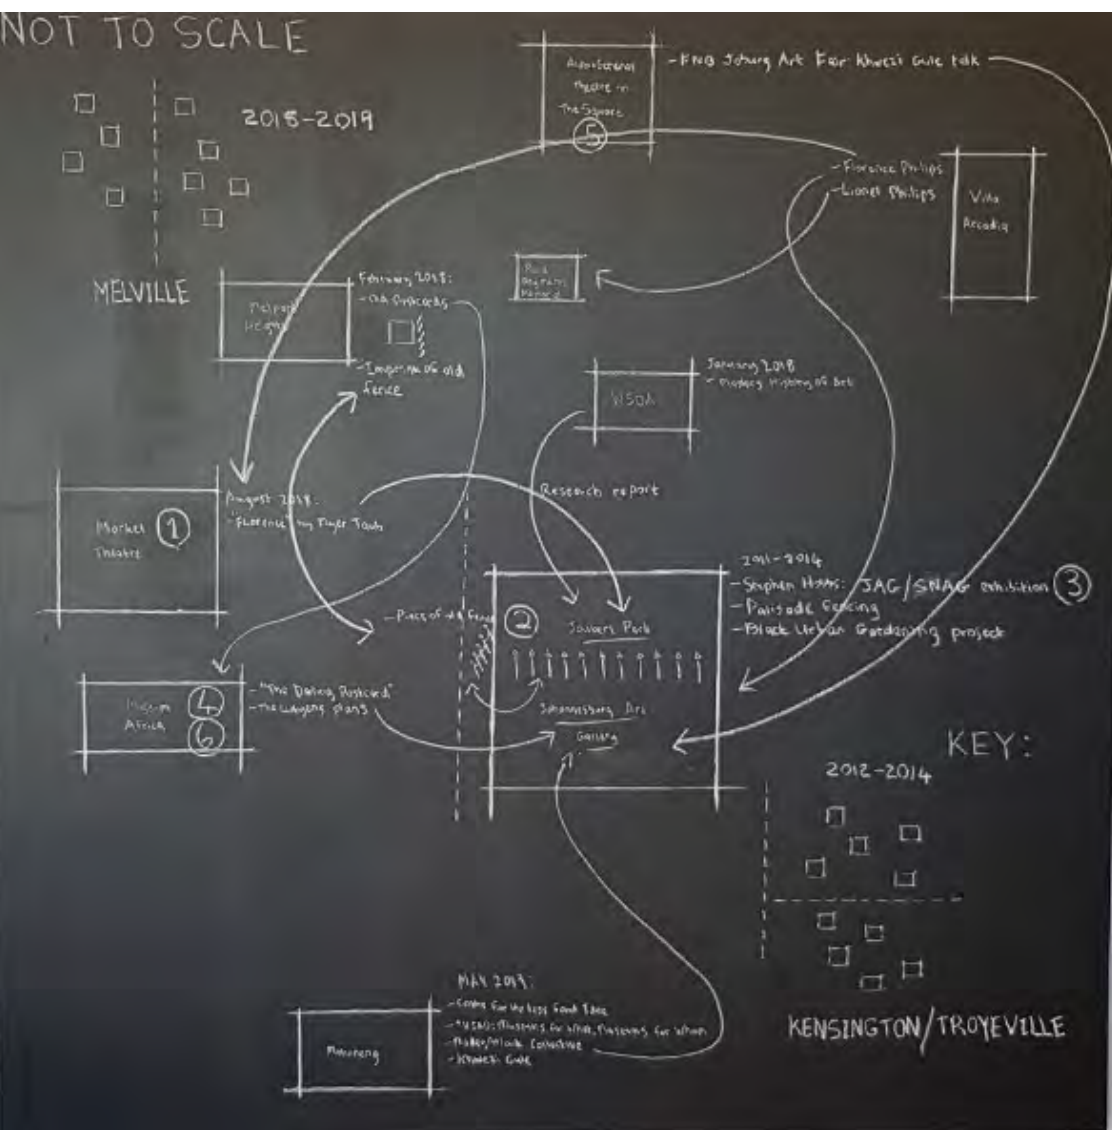 NOT TO SCALE
2018-2019
MELVILLE
Theatre in
The Square
5
- FNB Joburg Art Fair Khwezi Gule talk
- Florence Philips
- Lionel Philips
Villa
Arcadia
February 2018:
- Old Postcards
Melpark
Heights
- Imprint of old
fence
January 2018
History of Art
WSOA
Research report
August 2018:
- "Florence" by Myer Taub
Market
Theatre
1
2011-2014
- Stephen Hobbs: JAG/SNAG exhibition 3
- Palisade Fencing
- Black Urban Gardening project
- Piece of old fence
2
Joubert Park
Johannesburg Art
Gallery
Museum
Africa
4
6
- "The Darling Postcard"
- The Lutyens plans
KEY:
2012-2014
KENSINGTON/TROYEVILLE
MAY 2019:
- Centre for the Less Good Idea
Museums for What, Museums for Whom
Collective
- Khwezi Gule
Maboneng